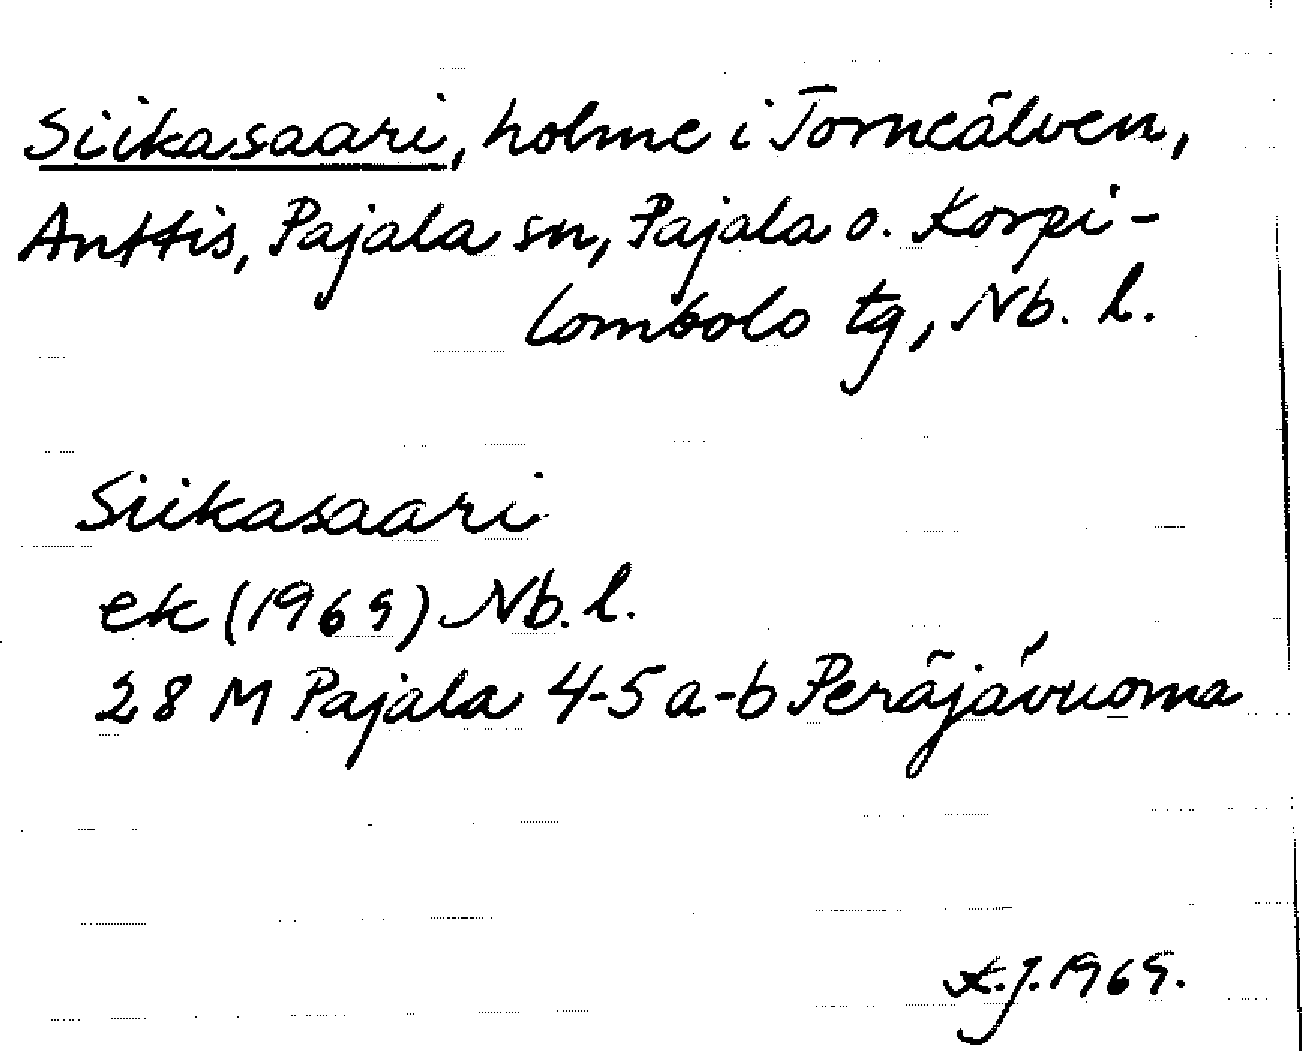 Siikasaari, holme i Torneälven,
Anttis, Pajala sn, Pajala o. Korpi-
lombolo tg, Nb. l.
Siikasaari
ek (1969) Nb. l.
28 M Pajala 4-5 a-b Peräjävuoma
K.J. 1969.